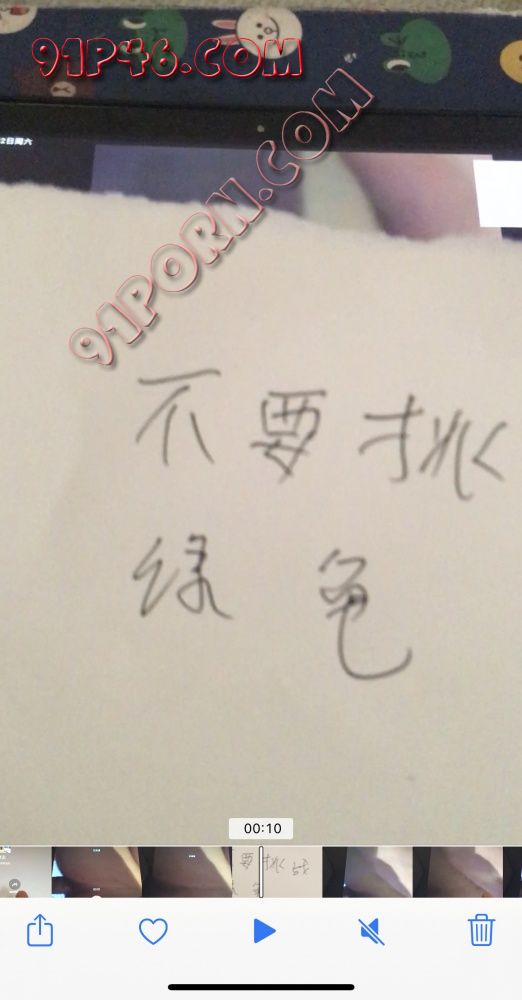 91P46.COM
2日周六
91PORN.COM
不要挑
绿色
00:10